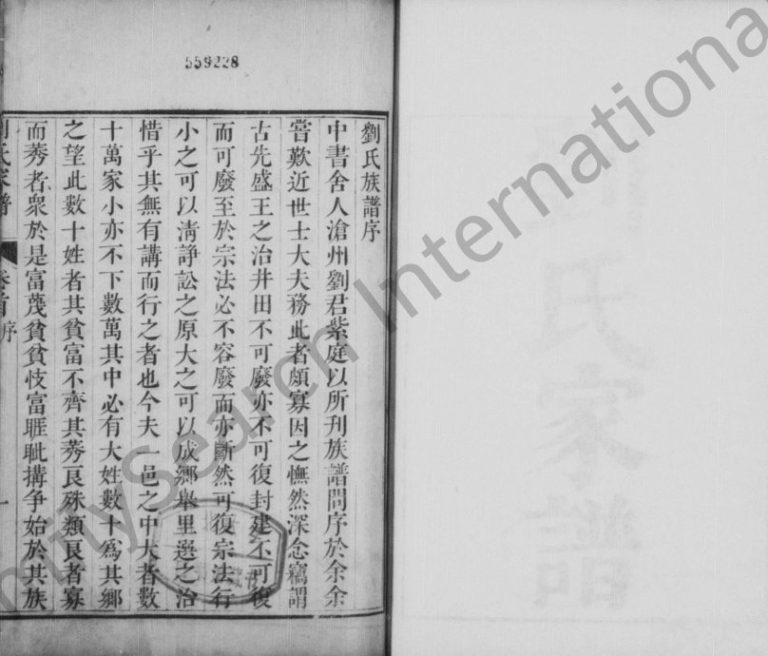 559228
劉氏族譜序
中書舍人滄州劉君紫庭以所刊族譜問序於余余
嘗歎近世士大夫務此者頗寡因之憮然深念竊謂
古先盛王之治井田不可廢亦不可復封建不可復
而可廢至於宗法必不容廢而亦斷然可復宗法行
小之可以清諍訟之原大之可以成鄉舉里選之治
惜乎其無有講而行之者也今夫一邑之中大者數
十萬家小亦不下數萬其中必有大姓數十爲其鄉
之望此數十姓者其貧富不齊其莠良殊類良者寡
而莠者衆於是富蔑貧貧忮富睚眦搆争始於其族
劉氏家譜 卷首 序 一
劉氏家譜
FamilySearch International